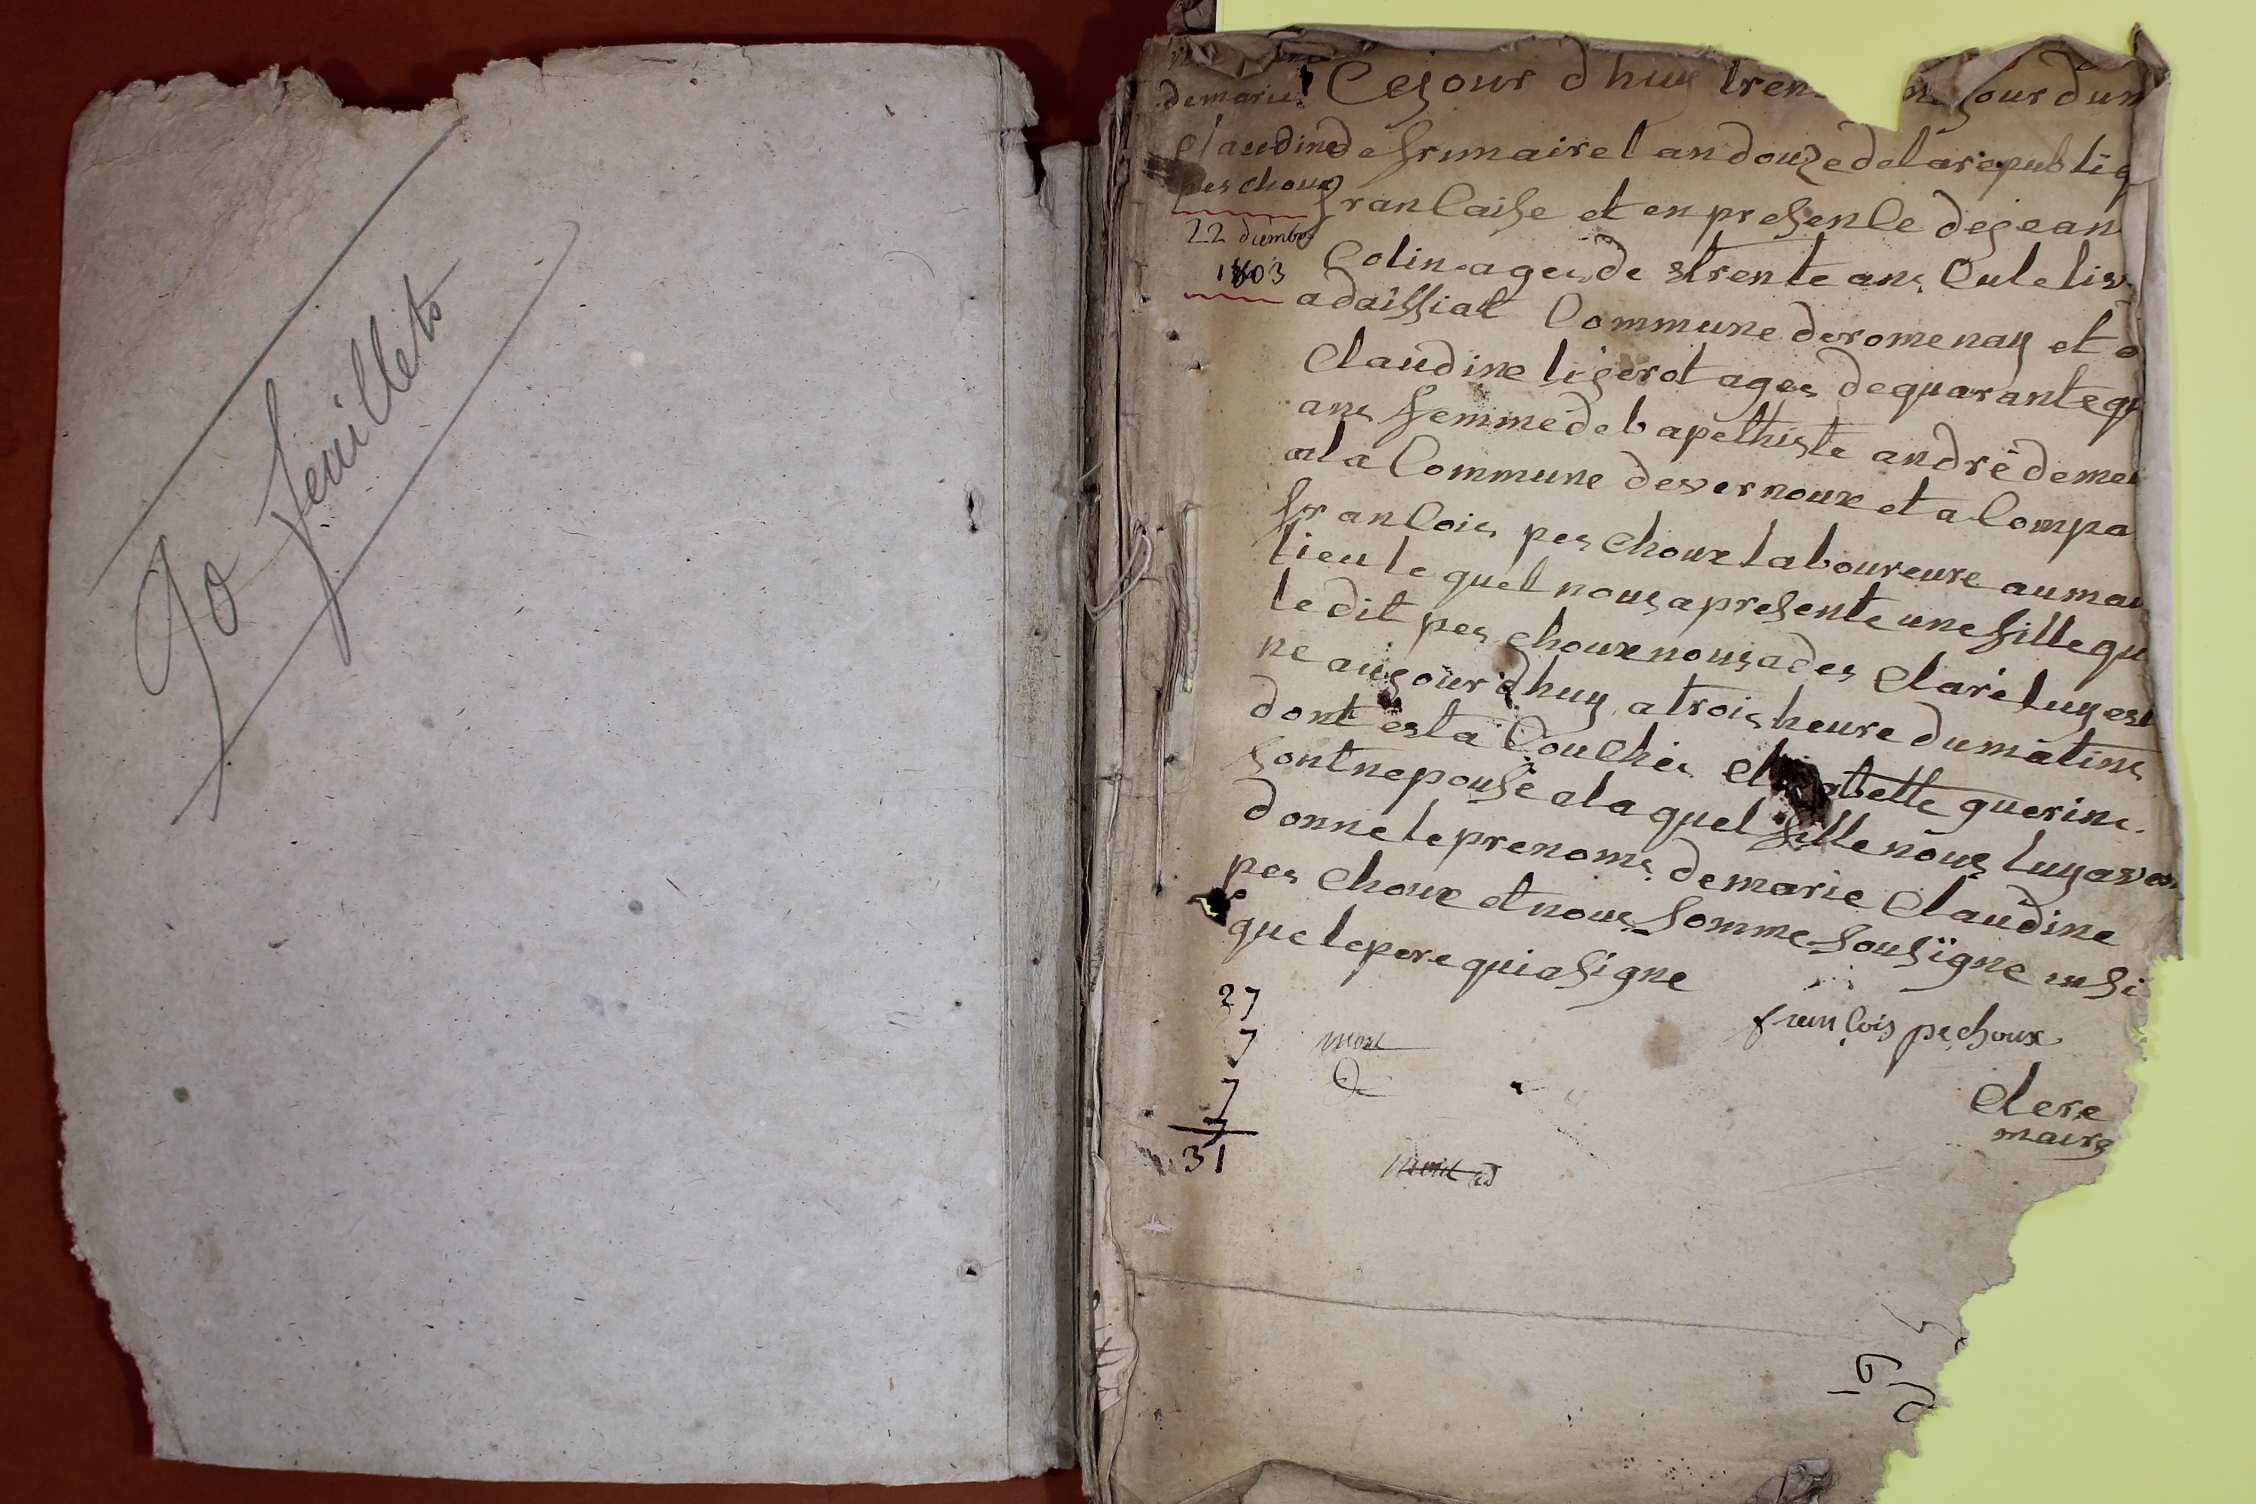 90 feuillets
demarie
Claudine
pes choux
22 décembre
1803
Cejour dhuy tren jour dum
de frimaire landouze delarepubliq
francaise et en presence dejean
Colin agee de trente ans Cultiv
adaissiat Commune deromenay et
Claudine ligerot agee dequarante qu
ans femme de bapethiste andré demeu
ala Commune devernoux et a Compa
francois pes choux laboureure au
lieu le quel nous apresente une fille qu
le dit pes choux nous a des Claré luy est
ne aujourdhuy atrois heure dumatins
dont est a Couchée guerin
sont nepouse ala quel fille nous luy avon
donne leprenoms demarie Claudine
pes choux et nous somme sousigne insi
que lepere quiasigne
francois pechoux
Clere
maire
27
7
7
31